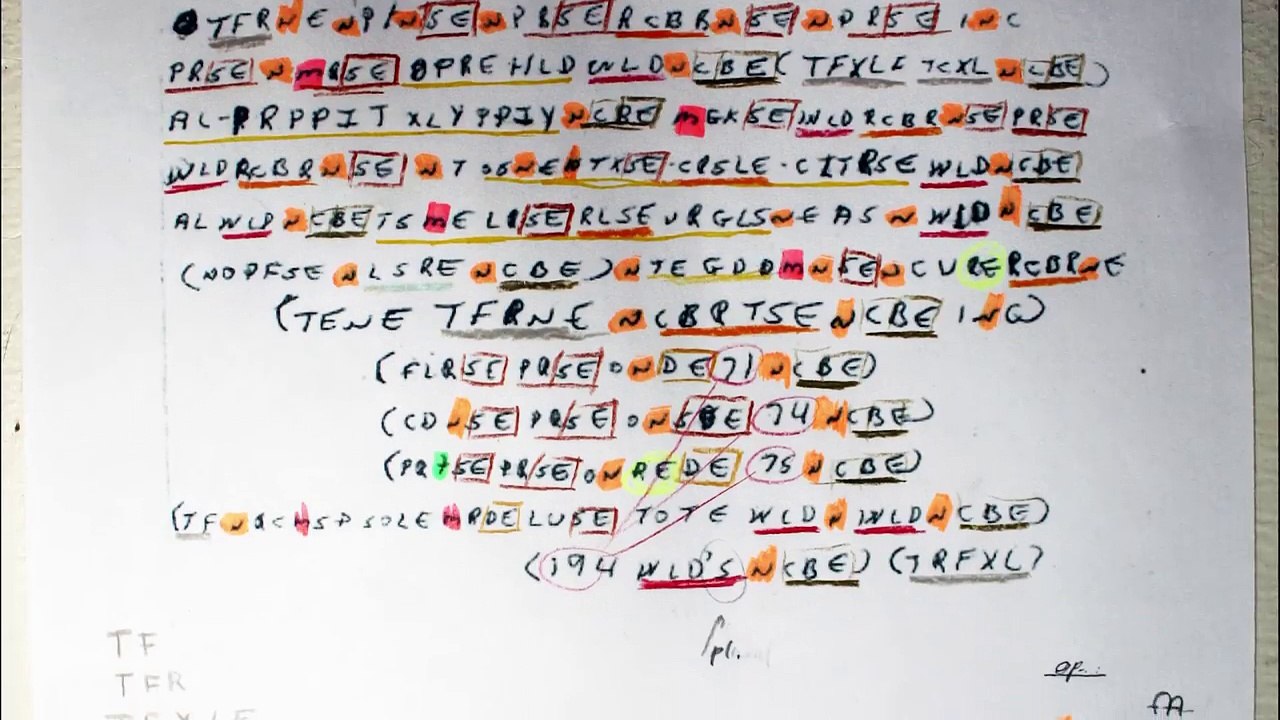 TFRNE NPINSENPRSERCBBNSENPRSE INC
PRSE N MRSE OPREHLD WLD NCBE (TFXLF TCXL NCBE)
AL-PRPPIT XLYPPIY NCBE MGKSE WLD RCBR NSE PRSE
WLD RCBR NSE N T OSNE NTXSE-CRSLE-CITRSE WLD NCBE
AL WLD NCBE TS MELRSE RLSE URGLSNE AS N WLD NCBE
(NOPFSE NLSRE NCBE) NTEGDDMNSENCURERCBRNE
(TENE TFRNE NCBRTSE NCBE INC)
(FLRSE PRSE ONDE 71 NCBE)
(CDNSE PRSE ONSDE 74 NCBE)
(PRTSE PRSE ONREDE 75 NCBE)
(TFNRCMSP SOLE MRDE LUSE TOTE WLD N WLD NCBE)
(194 WLD'S NCBE) (TRFXL)
pl.
TF
TFR
TFXLF